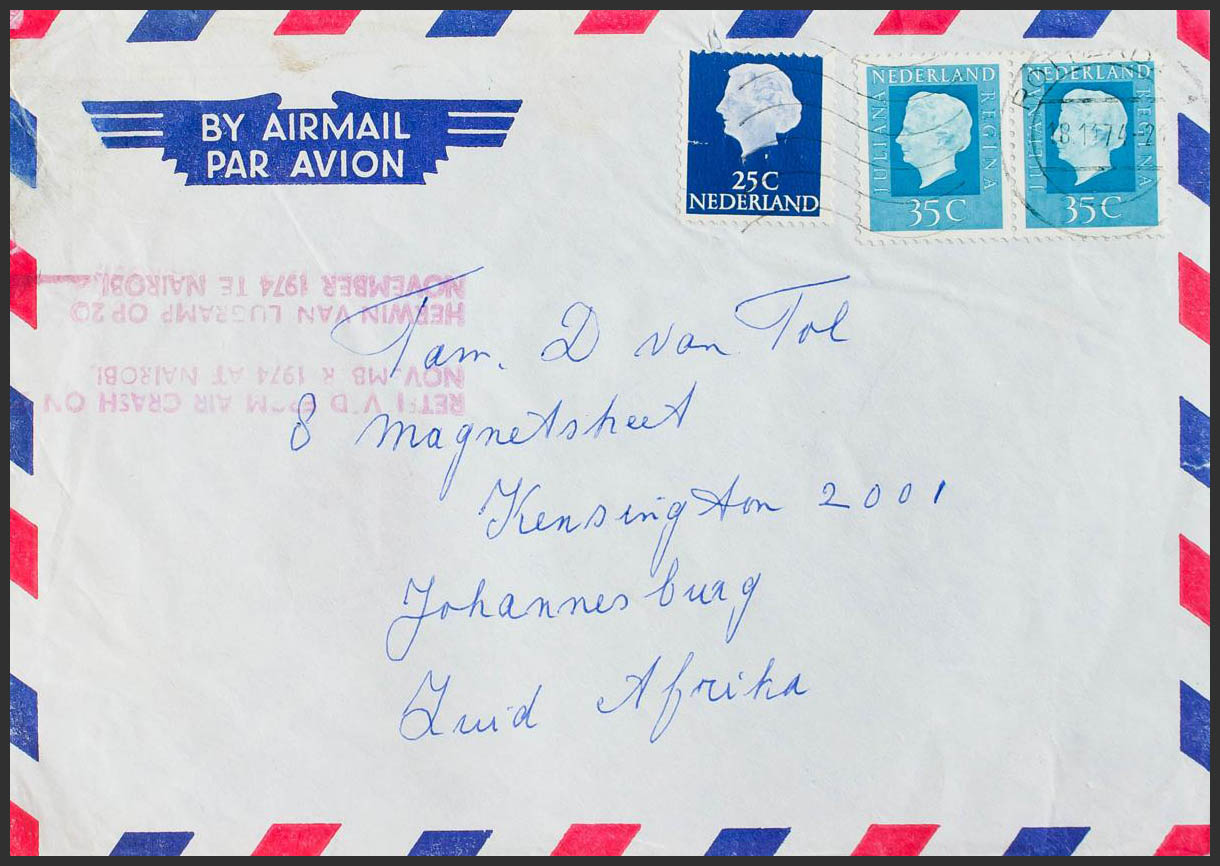 BY AIRMAIL
PAR AVION
25 C
NEDERLAND
NEDERLAND
JULIANA
REGINA
35 C
NEDERLAND
JULIANA
REGINA
35 C
AIR CRASH ON
1974 AT NAIROBI.
HERWIN VAN OP 20
NOVEMBER 1974 TE NAIROBI.
Fam. D van Tol
8 Magnetsheet
Kensington 2001
Johannesburg
Zuid Afrika